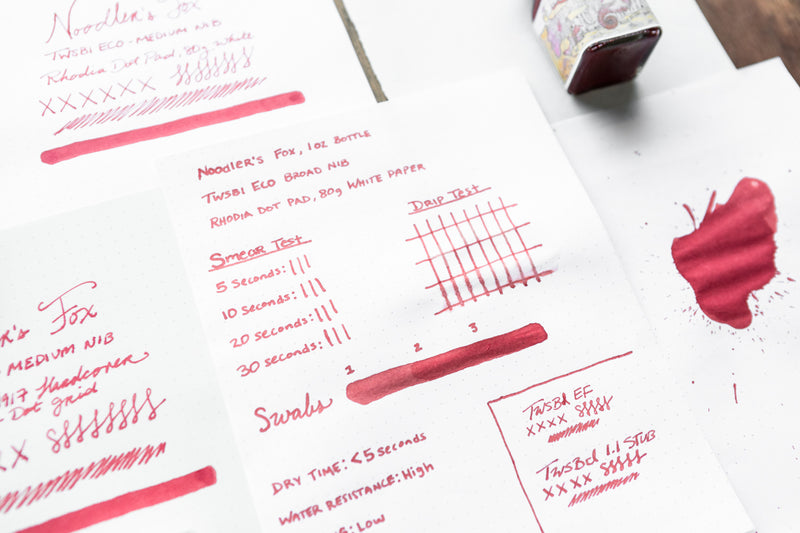 Noodler's Fox
TWSBI ECO - MEDIUM NIB
Rhodia Dot Pad, 80g White
X X X X X X
NOODLER'S FOX, 1 OZ BOTTLE
TWSBI ECO BROAD NIB
RHODIA DOT PAD, 80g WHITE PAPER
Smear Test
5 seconds:
10 seconds:
20 seconds:
30 seconds:
Drip Test
1 2 3
Swabs
DRY TIME: <5 seconds
WATER RESISTANCE: High
: LOW
TWSBI EF
X X X X
TWSBI 1.1 STUB
X X X X
Fox
MEDIUM NIB
1917 Hardcover
Dot grid
X X